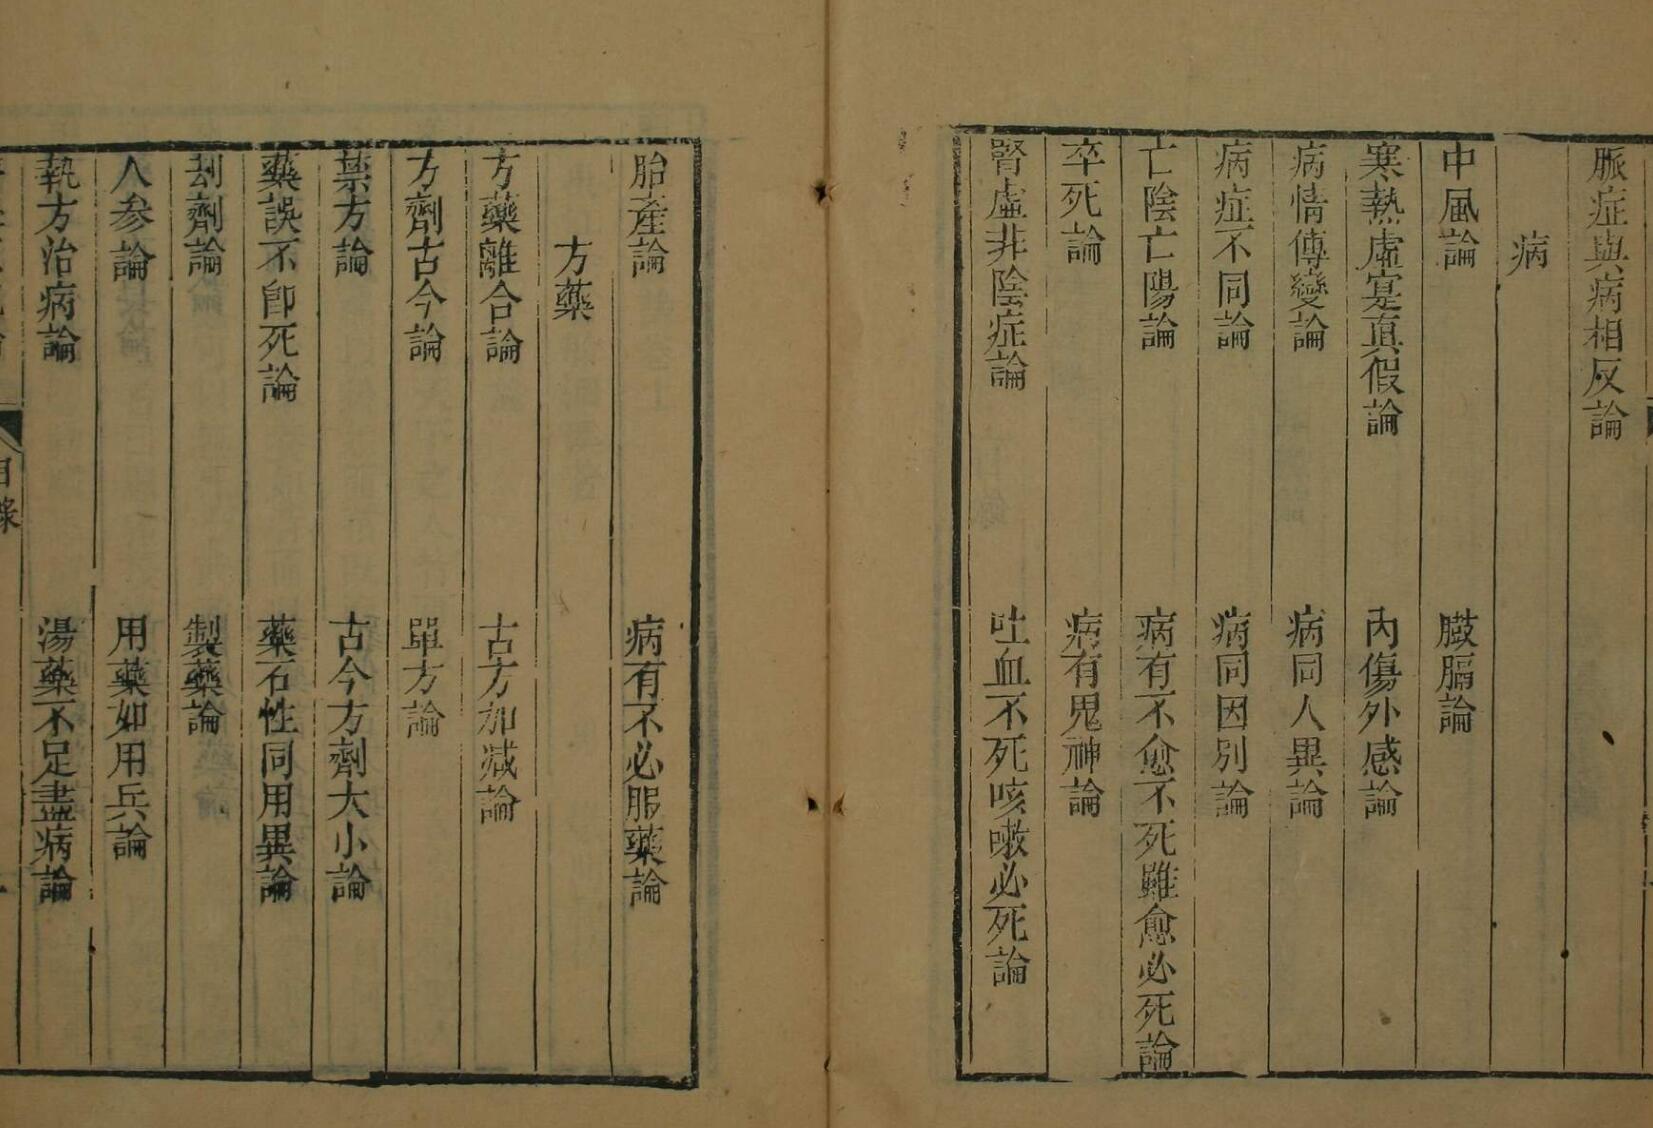 脈症與病相反論
病
中風論
臌膈論
寒熱虛寔真假論
內傷外感論
病情傳變論
病同人異論
病症不同論
病同因別論
亡陰亡陽論
病有不愈不死雖愈必死論
卒死論
病有鬼神論
腎虛非陰症論
吐血不死咳嗽必死論
胎產論
病有不必服藥論
方藥
方藥離合論
古方加减論
方劑古今論
單方論
禁方論
古今方劑大小論
藥誤不卽死論
藥石性同用異論
劫劑論
製藥論
人參論
用藥如用兵論
執方治病論
湯藥不足盡病論
目錄